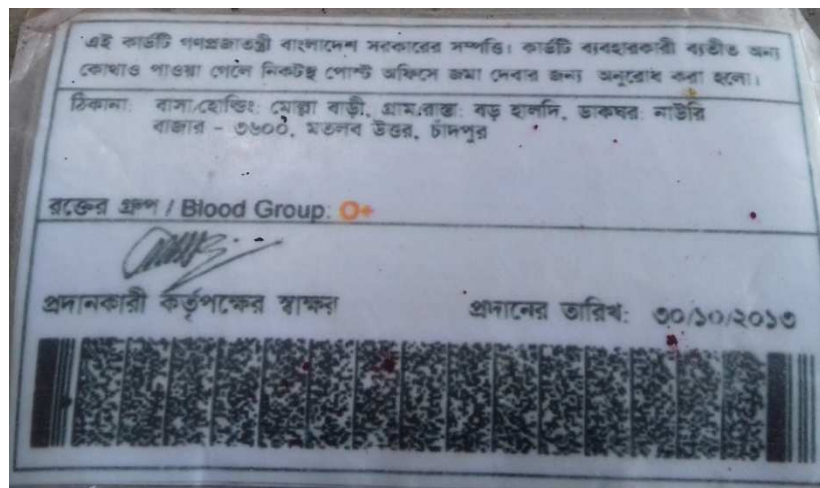 এই কার্ডটি গণপ্রজাতন্ত্রী বাংলাদেশ সরকারের সম্পত্তি। কার্ডটি ব্যবহারকারী ব্যতীত অন্য
কোথাও পাওয়া গেলে নিকটস্থ পোস্ট অফিসে জমা দেবার জন্য অনুরোধ করা হলো।
ঠিকানা: বাসা/হোল্ডিং: মোল্লা বাড়ী, গ্রাম/রাস্তা: বড় হলদি, ডাকঘর: নাউরি
বাজার - ৩৬০০, মতলব উত্তর, চাঁদপুর
রক্তের গ্রুপ / Blood Group: O+
প্রদানকারী কর্তৃপক্ষের স্বাক্ষর
প্রদানের তারিখ: ৩০/১০/২০১৩